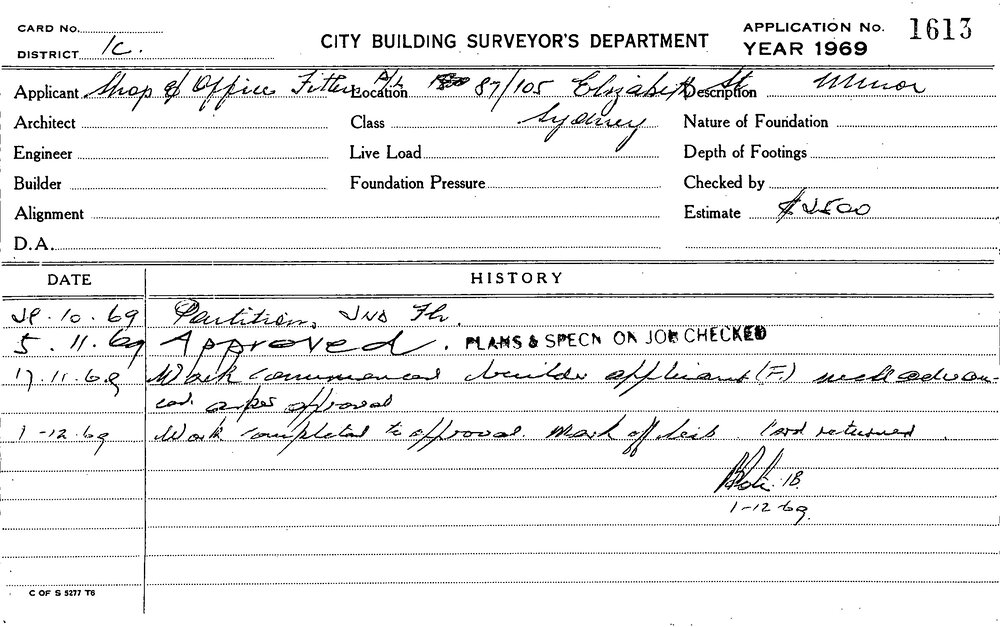 CARD No.
DISTRICT 1C.
CITY BUILDING SURVEYOR'S DEPARTMENT
APPLICATION No. 1613
YEAR 1969
Applicant Shop & Office Fitters P/L Location 87/105 Elizabeth St Description Minor
Architect Class Sydney Nature of Foundation
Engineer Live Load Depth of Footings
Builder Foundation Pressure Checked by
Alignment Estimate $2500
D.A.
DATE HISTORY
28.10.69 Partitions, 2nd Flr.
5.11.69 Approved. PLANS & SPECN ON JOB CHECKED
17.11.69 Work commenced builder applicant (F.) well advan-
ced. as per approval
1-12-69 Work completed to approval. Mark off . Card returned.
18
1-12-69.
C OF S 5277 T6